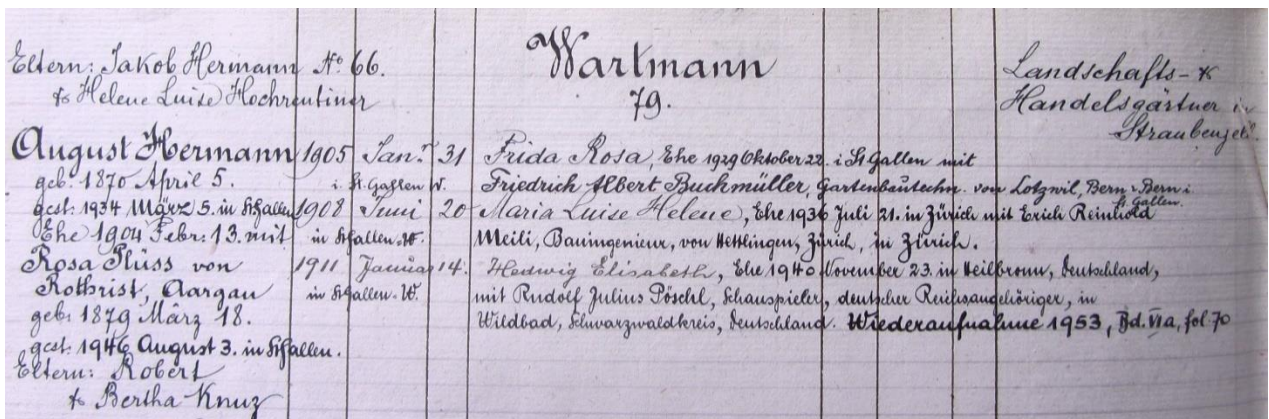 Wartmann
79.
Eltern: Jakob Hermann No 66.
& Helene Luise Hochreutiner
Landschafts- &
Handelsgärtner in
Straubenzell.
August Hermann
geb. 1870 April 5.
gest. 1934 März 5. in St.Gallen
Ehe 1904 Febr. 13. mit
Rosa Plüss von
Rothrist, Aargau
geb. 1879 März 18.
gest. 1946 August 3. in St.Gallen.
Eltern: Robert
& Bertha Knuz
1905 Janr. 31 Frida Rosa, Ehe 1929 Oktober 22. i. St.Gallen mit
i. St.Gallen W. Friedrich Albert Buchmüller, Gartenbautechn. von Lotzwil, Bern i.
St.Gallen.
1908 Juni 20 Maria Luise Helene, Ehe 1936 Juli 21. in Zürich mit Erich Reinhold
in St.Gallen. W. Meili, Bauingenieur, von Hettlingen, Zürich, in Zürich.
1911 Januar 14. Hedwig Elisabeth, Ehe 1940 November 23. in Heilbronn, Deutschland,
in St.Gallen. W. mit Rudolf Julius Pöschl, Schauspieler, deutscher Reichsangehöriger, in
Wildbad, Schwarzwaldkreis, Deutschland. Wiederaufnahme 1953, Bd. VIa, fol 70